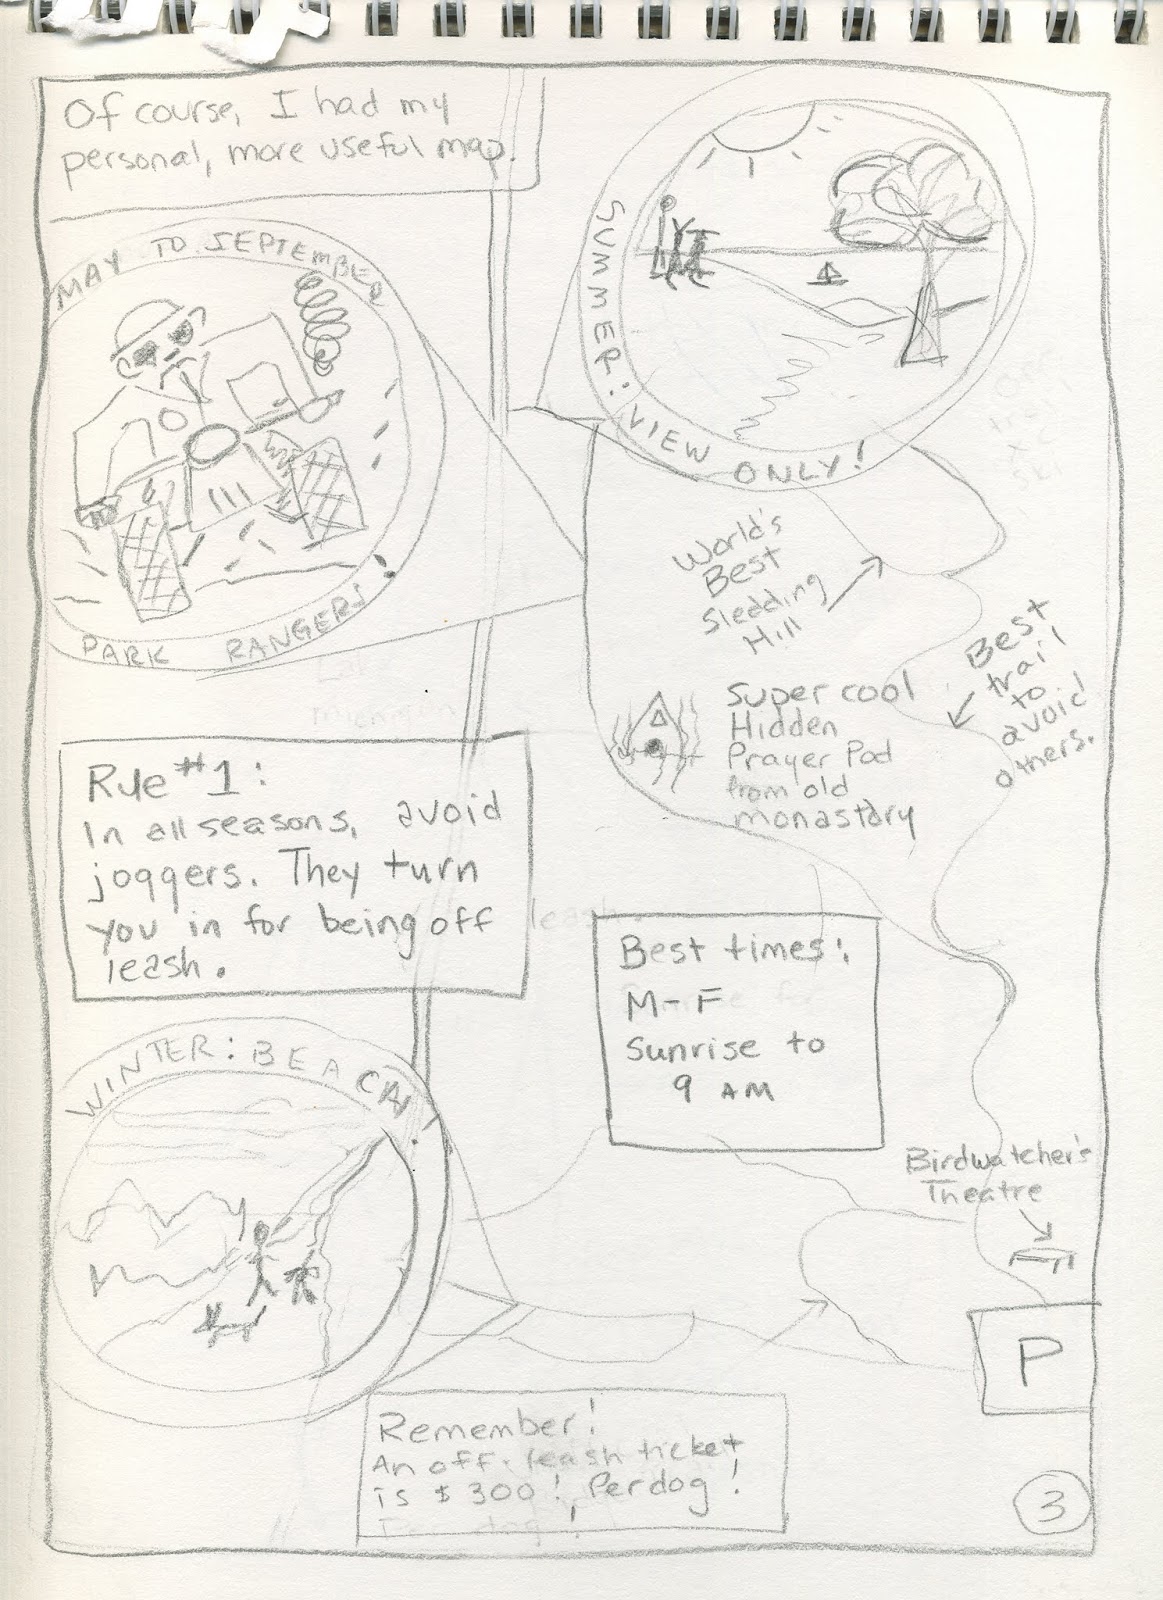 Of course, I had my
personal, more useful map.
MAY TO SEPTEMBER
PARK RANGERS!
SUMMER: VIEW ONLY!
World's
Best
Sledding
Hill
Best
trail
to
avoid
others.
Super cool
Hidden
Prayer Pod
from old
monastary
Rule #1:
In all seasons, avoid
joggers. They turn
you in for being off
leash.
Best times:
M-F
Sunrise to
9 AM
WINTER: BEACH!
Birdwatcher's
Theatre
P
Remember!
An off-leash ticket
is $300! Per dog!
3